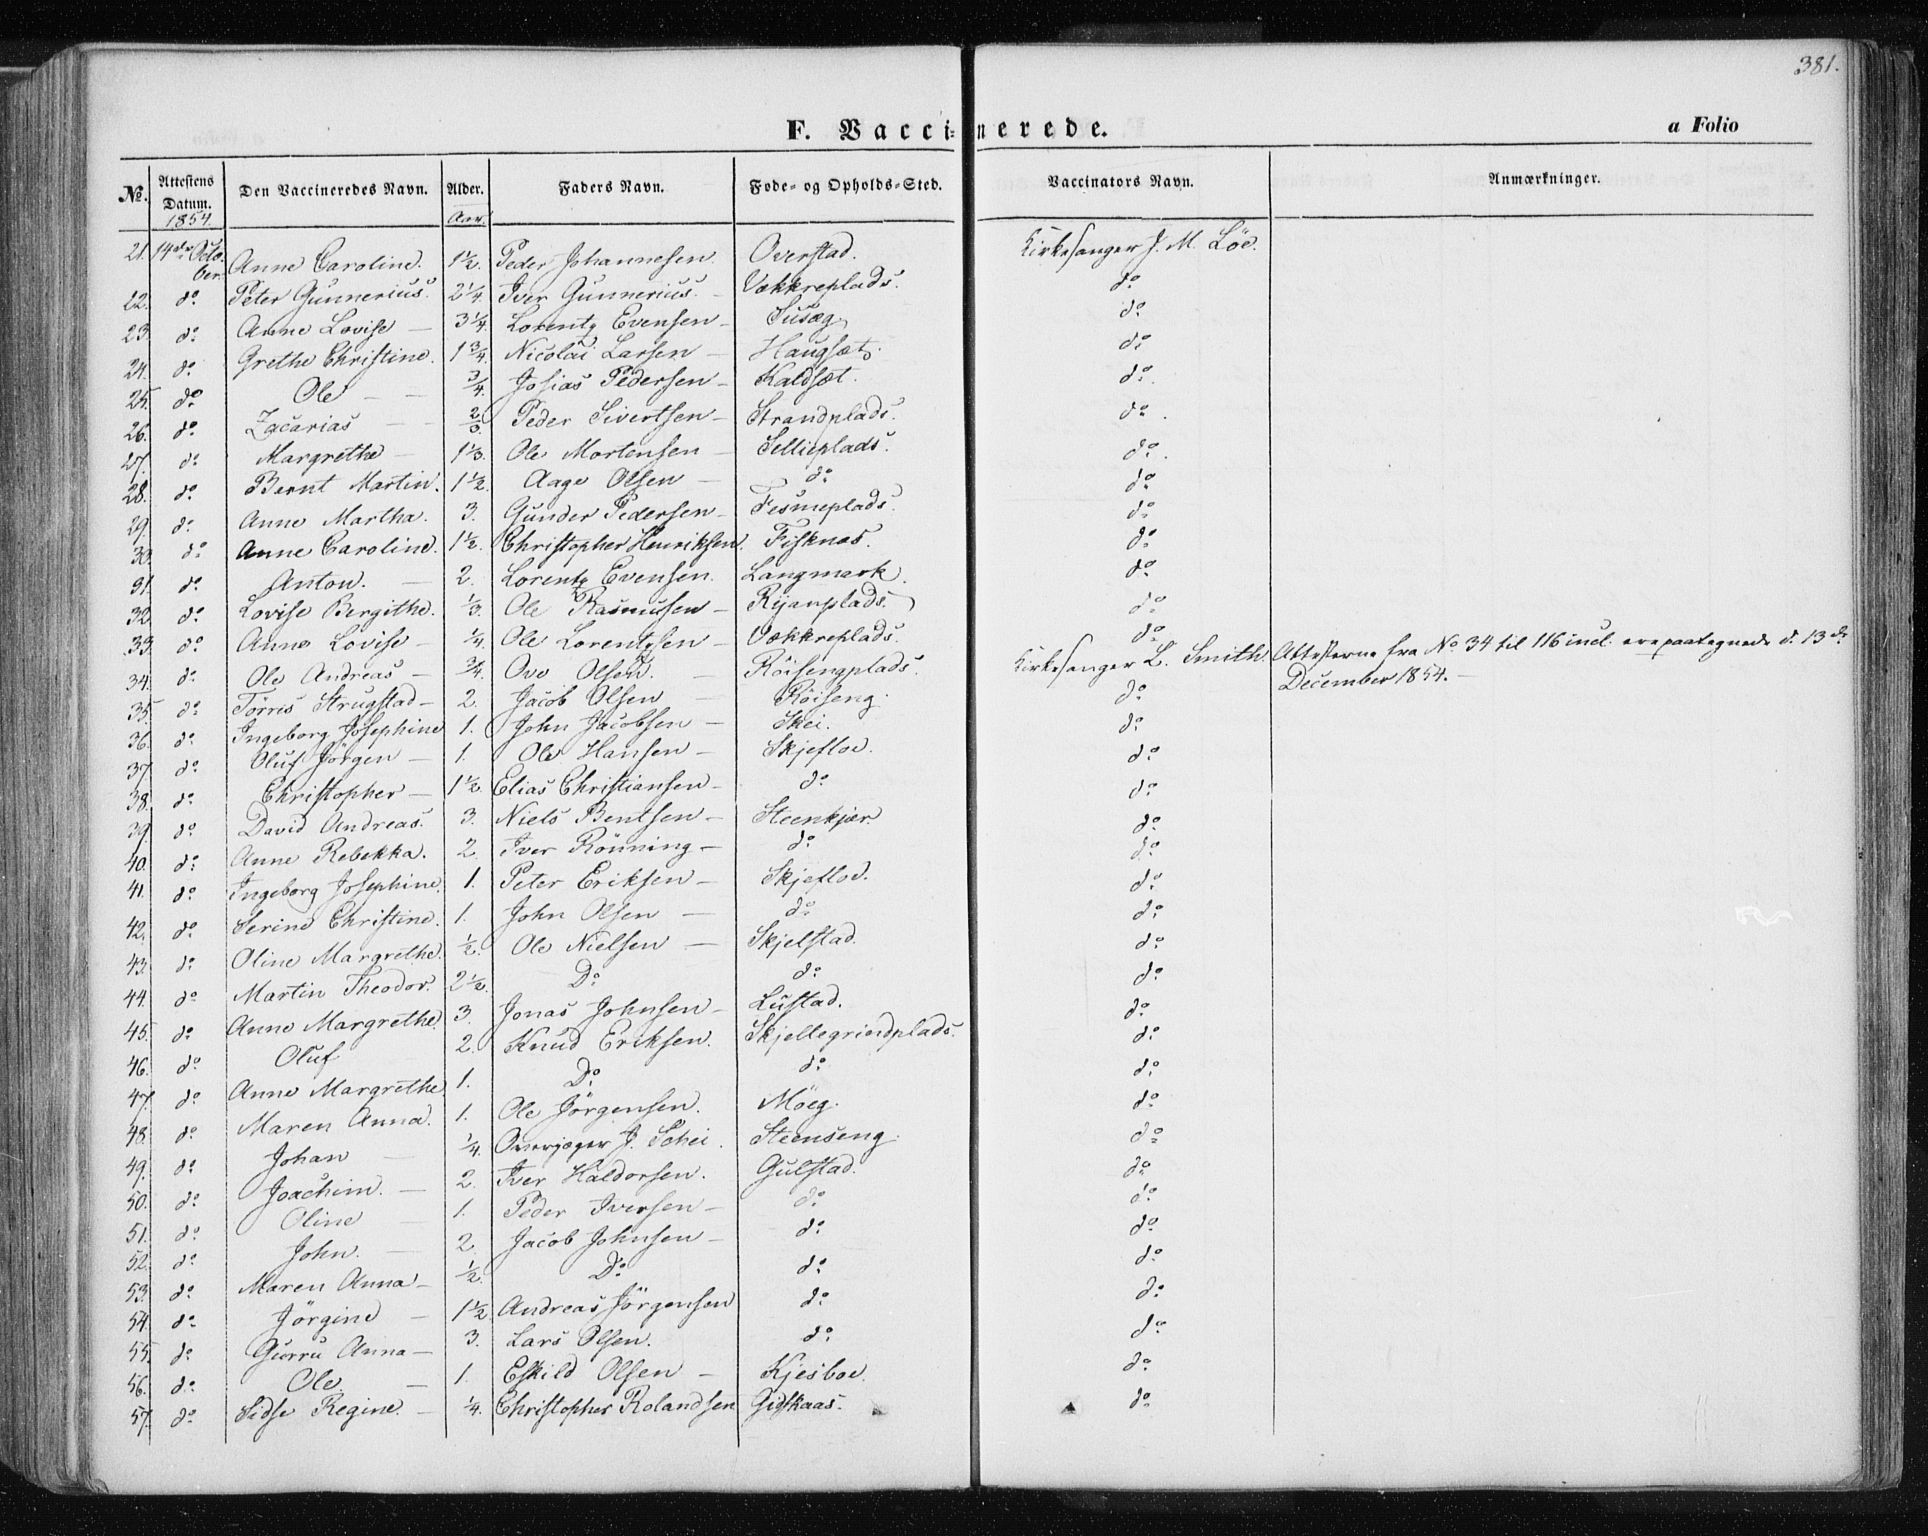 381.
F. Vaccinerede.
a Folio
No. Attestens Datum. Den Vaccineredes Navn. Alder. Faders Navn. Føde- og Opholds-Sted. Vaccinators Navn. Anmærkninger.
1854. Aar.
21. 14de October Anne Caroline. 1 1/2. Peder Johannesen Overstad. Kirkesanger J. M. Löe.
22. do Peter Gunnerius. 2 1/4. Iver Gunnerius. Vækkreplads. do
23. do Anne Lovise 3 1/4. Lorentz Evensen Susæg do
24. do Grethe Christine. 1 3/4. Nicolai Larsen Haugsæt. do
25. do Ole 3/4. Josias Pedersen Kaldsæt. do.
26. do Zacarias 2/3. Peder Sivertsen Strandplads. do.
27. do Margrethe 1 1/3. Ole Mortensen Sellieplads. do.
28. do Bernt Martin. 1 1/2. Aage Olsen do do
29. do Anne Martha. 3. Gunder Pedersen Fesmeplads. do
30. do Anne Caroline. 1 1/2. Christopher Henriksen. Fisknas. do
31. do Anton. 2. Lorentz Evensen. Langmark. do
32. do Lovise Bergithe. 1/3. Ole Rasmussen Ryanplads. do
33. do Anne Lovise 1/4. Ole Lorentzen Vækkreplads. do
34. do Ole Andreas 3/4. Ove Olsen. Röisengplads. Kirkesanger L. Smith. Attesterne fra No 34 til 116 incl. ere paategnede d. 13de
December 1854.
35. do Torris Strugstad 2. Jacob Olsen Röiseng. do
36. do Ingeborg Josephine 1. John Jacobsen Skei. do
37. do Oluf Jörgen 1. Ole Hansen Skjefloe. do
38. do Christopher 1 1/2. Elias Christiansen do do
39. do David Andreas. 3. Niels Bentsen Steenkjær. do
40. do Anne Rebekka. 2. Iver Rönning do do
41. do Ingeborg Josephine. 1. Peter Eriksen Skjefloe. do
42. do Serine Christine. 1. John Olsen do do
43. do Oline Margrethe. 1/2. Ole Nielsen Skjelstad. do
44. do Martin Theodor. 2 1/2. Do do do
45. do Anne Margrethe. 3. Jonas Johnsen Lustad. do
46. do Oluf 2. Knud Eriksen. Skjellegrindplads. do
47. do Anne Margrethe. 1. Do do do
48. do Maren Anna. 1. Ole Jörgensen. Möeg. do
49. do Johan 1/4. Overjæger J. Schei. Steenseng. do
50. do Joachim. 2. Iver Haldorsen. Gulstad. do
51. do Oline 1. Peder Iversen do do
52. do John. 2. Jacob Johnsen do do
53. do Maren Anna 1/2. Do do do
54. do Jörgine 1 1/2. Andreas Jörgensen do do
55. do Gurru Anna 3. Lars Olsen. do do
56. do Ole 1. Eskild Olsen Kjesboe. do
57. do Sidse Regine. 1/4. Christopher Rolandsen Gidskaas. do